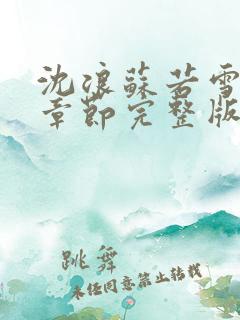 沈浪蘇若雪
章節完整版
跳舞
未经同意禁止转载